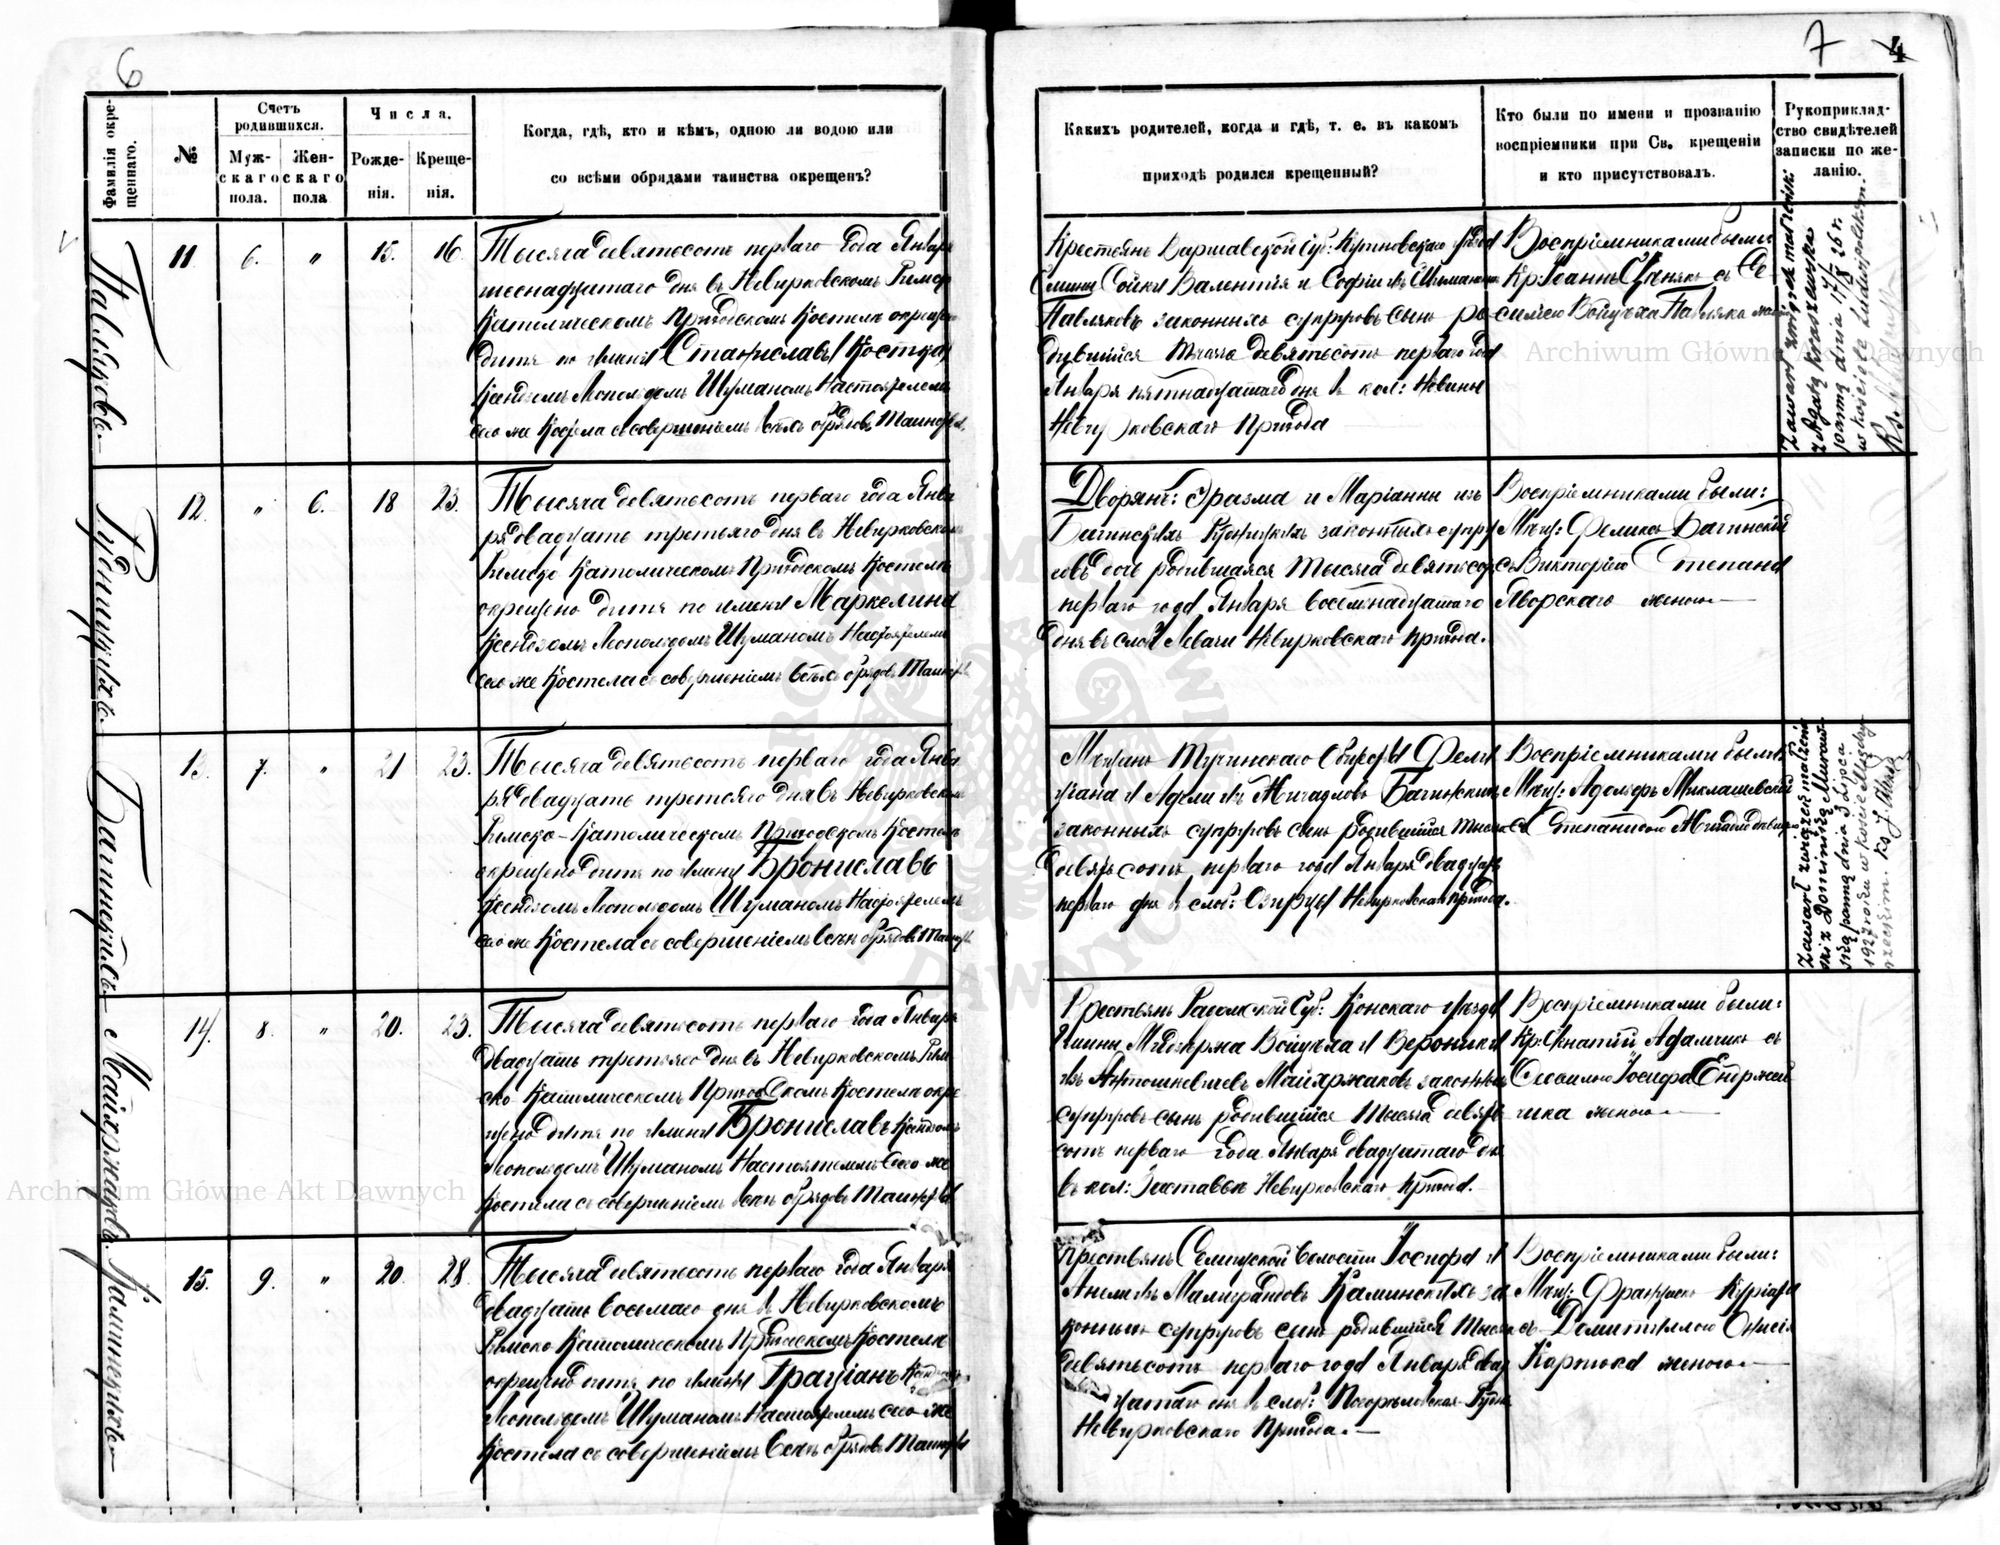 6
Фамилія окре-
щеннаго.
№
Счетъ
родившихся.
Муж-
скаго
пола.
Жен-
скаго
пола
Числа.
Рожде-
нія.
Креще-
нія.
Когда, гдѣ, кто и кѣмъ, одною ли водою или
со всѣми обрядами таинства окрещенъ?
11 6. " 15. 16.
Тысяча девятьсотъ перваго года Января
шеснадцатаго дня въ Невирковскомъ Римско
Католическомъ Приходскомъ Костелѣ окрещено
дитя по имени Станиславъ Костка
Ксендзомъ Леопольдомъ Шуманомъ Настоятелемъ
сего же Костела съ совершеніемъ всѣхъ обрядовъ Таинства
12. " 6. 18 23.
Тысяча девятьсотъ перваго года Янва
ря двадцать третьяго дня въ Невирковскомъ
Римско Католическомъ Приходскомъ Костелѣ
окрещено дитя по имени Маркелина
Ксендзомъ Леопольдомъ Шуманомъ Настоятелемъ
сего же Костела съ совершеніемъ всѣхъ обрядовъ Таинства
13. 7. " 21 23.
Тысяча девятьсотъ перваго года Янва
ря двадцать третьяго дня въ Невирковскомъ
Римско-Католическомъ Приходскомъ Костелѣ
окрещено дитя по имени Брониславъ
Ксендзомъ Леопольдомъ Шуманомъ Настоятелемъ
сего же Костела съ совершеніемъ всѣхъ обрядовъ Таинства
14. 8. " 20. 23.
Тысяча девятьсотъ перваго года Января
двадцать третьяго дня въ Невирковскомъ Рим
ско Католическомъ Приходскомъ Костелѣ окре
щено дитя по имени Брониславъ Ксендзомъ
Леопольдомъ Шуманомъ Настоятелемъ сего же
Костела съ совершеніемъ всѣхъ обрядовъ Таинства
15. 9. " 20. 28.
Тысяча девятьсотъ перваго года Января
двадцать восьмаго дня въ Невирковскомъ
Римско Католическомъ Приходскомъ Костелѣ
окрещено дитя по имени Граціанъ Ксендзомъ
Леопольдомъ Шуманомъ Настоятелемъ сего же
Костела съ совершеніемъ всѣхъ обрядовъ Таинства
7 4
Какихъ родителей, когда и гдѣ, т. е. въ какомъ
приходѣ родился крещенный?
Кто были по имени и прозванію
воспріемники при Св. крещеніи
и кто присутствовалъ.
Рукоприклад-
ство свидѣтелей
записки по же-
ланію.
Крестьянъ Варшавской Губ: Кутновскаго уѣзда
Гмины Сойки Валентія и Софіи изъ
Павляковъ законныхъ супруговъ сынъ ро
дившійся тысяча девятьсотъ перваго года
Января пятнадцатаго дня въ кол:
Невирковскаго Прихода
Воспріемниками были
Кр: Іоаннъ съ
Войцѣха Павляка
Zawarł związek małżeński
z Agatą
panną dnia 17/IX 26 r.
w kościele Ludwipolskim.
Дворянъ: Эразма и Маріанны изъ
Багинскихъ законныхъ супру
говъ дочь родившаяся тысяча девятьсотъ
перваго года Января восемнадцатаго
дня въ слоб: Левачи Невирковскаго прихода.
Воспріемниками были:
Мѣщ: Феликсъ Багинскій
съ Викторіею Степана
Яворскаго женою
Мѣщанъ Тучинскаго Общества Фели
ціана и Адели изъ Багинскихъ
законныхъ супруговъ сынъ родившійся тысяча
девятьсотъ перваго года Января двадцать
перваго дня въ слоб: Невирковскаго прихода.
Воспріемниками были:
Мѣщ: Адольфъ Миклашевскій
съ Степанидою
Zawarł związek małżeń-
ski z Dominiką
ską panną dnia 3 lipca
1927 roku w kościele Między-
rzeckim.
Крестьянъ Радомской Губ: Конскаго уѣзда
Гмины Войцѣха и Вероники
изъ Антошкевичевъ Майхржаковъ законныхъ
супруговъ сынъ родившійся тысяча девять
сотъ перваго года Января двадцатаго дня
въ кол: Заставье Невирковскаго прихода.
Воспріемниками были:
Кр: Игнатій Адамчикъ съ
Іосифа
чика женою
Крестьянъ Селищской волости Іосифа и
Анели изъ Каминскихъ за
конныхъ супруговъ сынъ родившійся тысяча
девятьсотъ перваго года Января двад
цатаго дня въ слоб: Погореловская Гутня
Невирковскаго Прихода.
Воспріемниками были:
Мѣщ: Францискъ
съ Домитиллою
женою
Archiwum Główne Akt Dawnych
Archiwum Główne Akt Dawnych